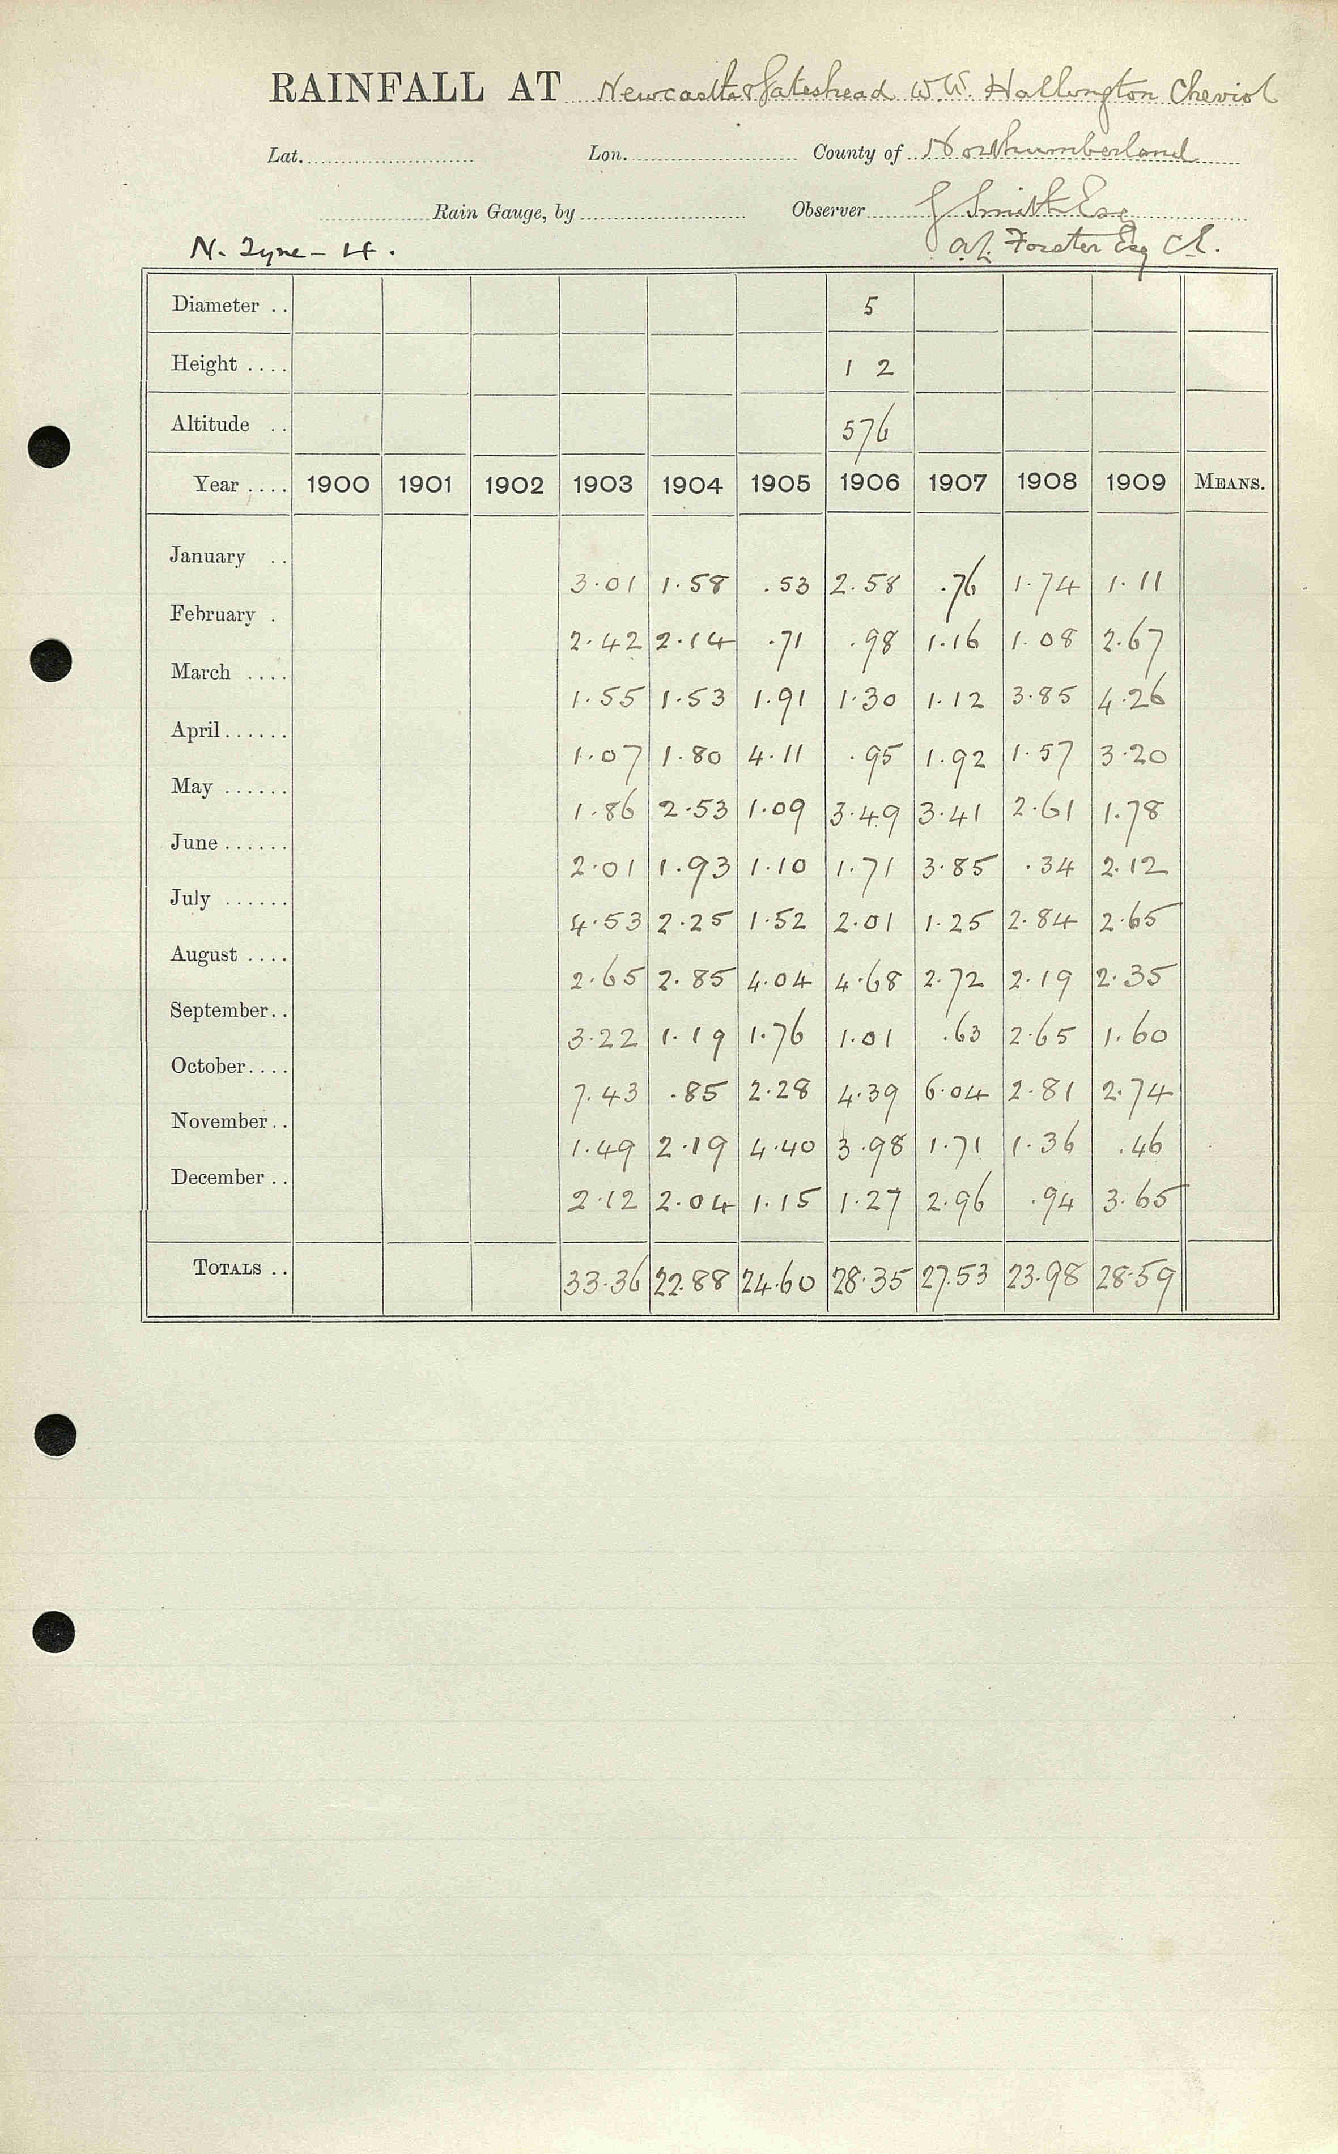 RAINFALL AT Newcastle & Gateshead W.W. Hallington Cheviot
Lat. Lon. County of Northumberland
Rain Gauge, by Observer J Smith Esq
N. Tyne - 4. Forster Esq C.E.
Diameter .. 5
Height .... 1 2
Altitude .. 576
Year .... 1900 1901 1902 1903 1904 1905 1906 1907 1908 1909 MEANS.
January .. 3.01 1.58 .53 2.58 .76 1.74 1.11
February . 2.42 2.14 .71 .98 1.16 1.08 2.67
March .... 1.55 1.53 1.91 1.30 1.12 3.85 4.26
April...... 1.07 1.80 4.11 .95 1.92 1.57 3.20
May ...... 1.86 2.53 1.09 3.49 3.41 2.61 1.78
June...... 2.01 1.93 1.10 1.71 3.85 .34 2.12
July ...... 4.53 2.25 1.52 2.01 1.25 2.84 2.65
August .... 2.65 2.85 4.04 4.68 2.72 2.19 2.35
September.. 3.22 1.19 1.76 1.01 .63 2.65 1.60
October.... 7.43 .85 2.28 4.39 6.04 2.81 2.74
November.. 1.49 2.19 4.40 3.98 1.71 1.36 .46
December .. 2.12 2.04 1.15 1.27 2.96 .94 3.65
TOTALS .. 33.36 22.88 24.60 28.35 27.53 23.98 28.59